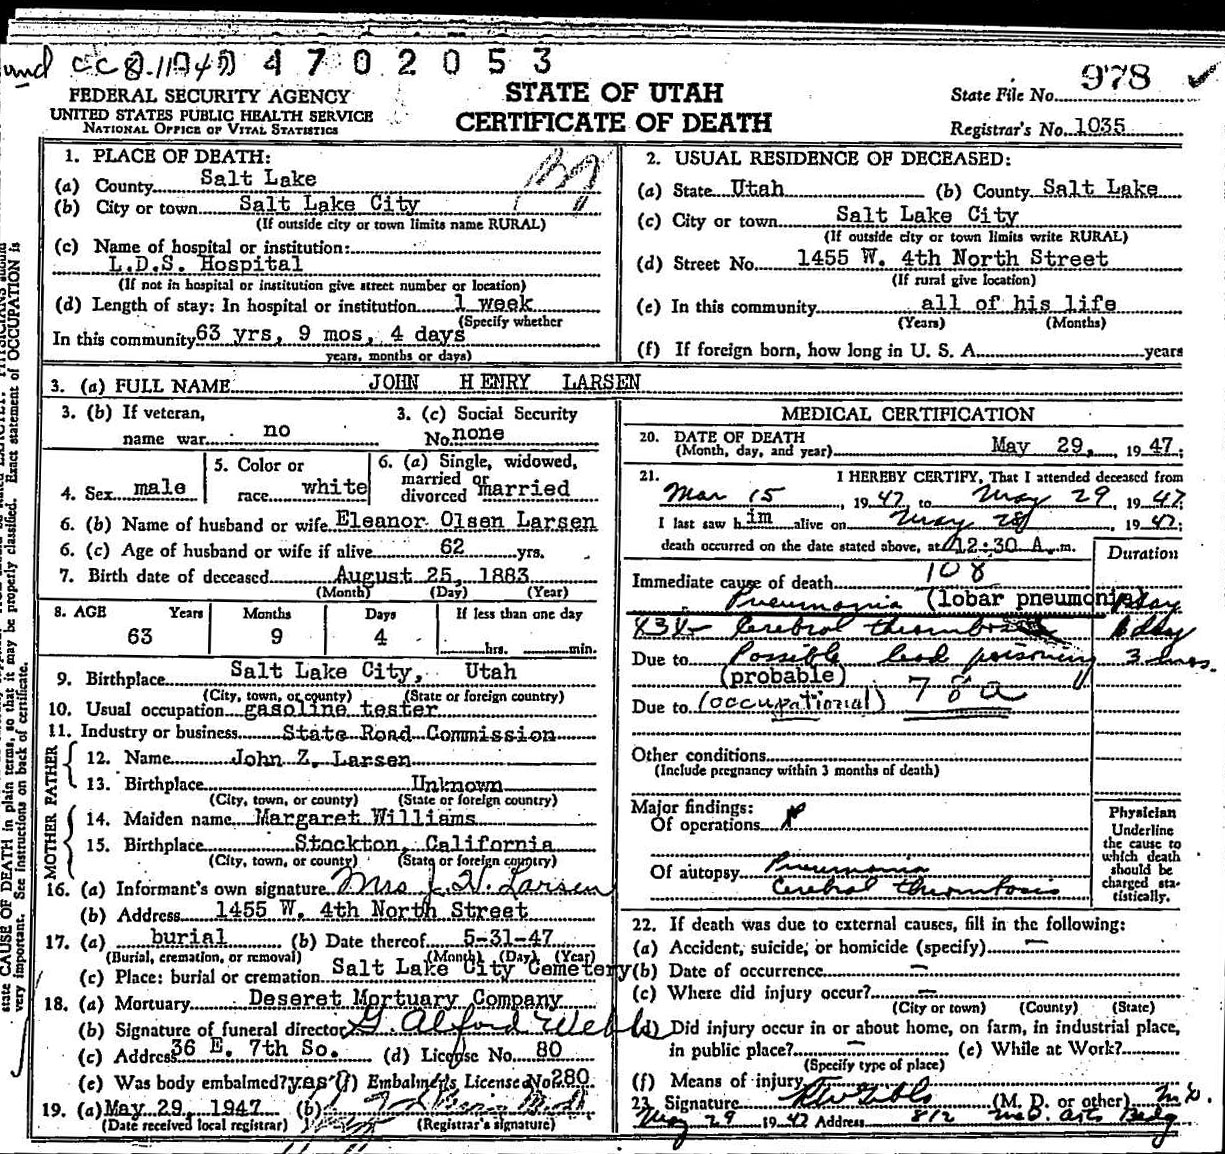 4702053
FEDERAL SECURITY AGENCY
UNITED STATES PUBLIC HEALTH SERVICE
NATIONAL OFFICE OF VITAL STATISTICS
STATE OF UTAH
CERTIFICATE OF DEATH
State File No. 978
Registrar's No. 1035
1. PLACE OF DEATH:
(a) County Salt Lake
(b) City or town Salt Lake City
(If outside city or town limits name RURAL)
(c) Name of hospital or institution:
L.D.S. Hospital
(If not in hospital or institution give street number or location)
(d) Length of stay: In hospital or institution 1 week
(Specify whether
In this community 63 yrs, 9 mos, 4 days
years, months or days)
2. USUAL RESIDENCE OF DECEASED:
(a) State Utah (b) County Salt Lake
(c) City or town Salt Lake City
(If outside city or town limits write RURAL)
(d) Street No. 1455 W. 4th North Street
(If rural give location)
(e) In this community all of his life
(Years) (Months)
(f) If foreign born, how long in U. S. A. years
3. (a) FULL NAME JOHN HENRY LARSEN
3. (b) If veteran,
name war no
3. (c) Social Security
No. none
4. Sex male
5. Color or
race white
6. (a) Single, widowed,
married or
divorced married
6. (b) Name of husband or wife Eleanor Olsen Larsen
6. (c) Age of husband or wife if alive 62 yrs.
7. Birth date of deceased August 25, 1883
(Month) (Day) (Year)
8. AGE Years Months Days If less than one day
63 9 4 hrs. min.
9. Birthplace Salt Lake City, Utah
(City, town, or county) (State or foreign country)
10. Usual occupation gasoline tester
11. Industry or business State Road Commission
FATHER
12. Name John Z. Larsen
13. Birthplace Unknown
(City, town, or county) (State or foreign country)
MOTHER
14. Maiden name Margaret Williams
15. Birthplace Stockton, California
(City, town, or county) (State or foreign country)
16. (a) Informant's own signature Mrs J. H. Larsen
(b) Address 1455 W. 4th North Street
17. (a) burial (b) Date thereof 5-31-47
(Burial, cremation, or removal) (Month) (Day) (Year)
(c) Place: burial or cremation Salt Lake City Cemetery
18. (a) Mortuary Deseret Mortuary Company
(b) Signature of funeral director G. Alford Webb
(c) Address 36 E. 7th So. (d) License No. 80
(e) Was body embalmed? yes (f) Embalmer's License No. 280
19. (a) May 29, 1947 (b)
(Date received local registrar) (Registrar's signature)
MEDICAL CERTIFICATION
20. DATE OF DEATH
(Month, day, and year) May 29, 1947;
21. I HEREBY CERTIFY, That I attended deceased from
Mar 15, 1947 to May 29 1947
I last saw him alive on May 28, 1947;
death occurred on the date stated above, at 12:30 A.m.
Duration
Immediate cause of death 108
Pneumonia (lobar pneumonia) day
Cerebral thrombosis 6 day
Due to Possible lead poisoning 3 mos.
(probable) 78a
Due to (occupational)
Other conditions
(Include pregnancy within 3 months of death)
Major findings:
Of operations
Of autopsy Pneumonia
Cerebral thrombosis
Physician
Underline
the cause to
which death
should be
charged sta-
tistically.
22. If death was due to external causes, fill in the following:
(a) Accident, suicide, or homicide (specify) —
(b) Date of occurrence —
(c) Where did injury occur? —
(City or town) (County) (State)
(d) Did injury occur in or about home, on farm, in industrial place,
in public place? — (e) While at Work?
(Specify type of place)
(f) Means of injury
23. Signature (M. D. or other) M.D.
May 29 1947 Address 812 Med. Arts Bldg
state CAUSE OF DEATH in plain terms, so that it may be properly classified. Exact statement of OCCUPATION is
very important. See instructions on back of certificate.